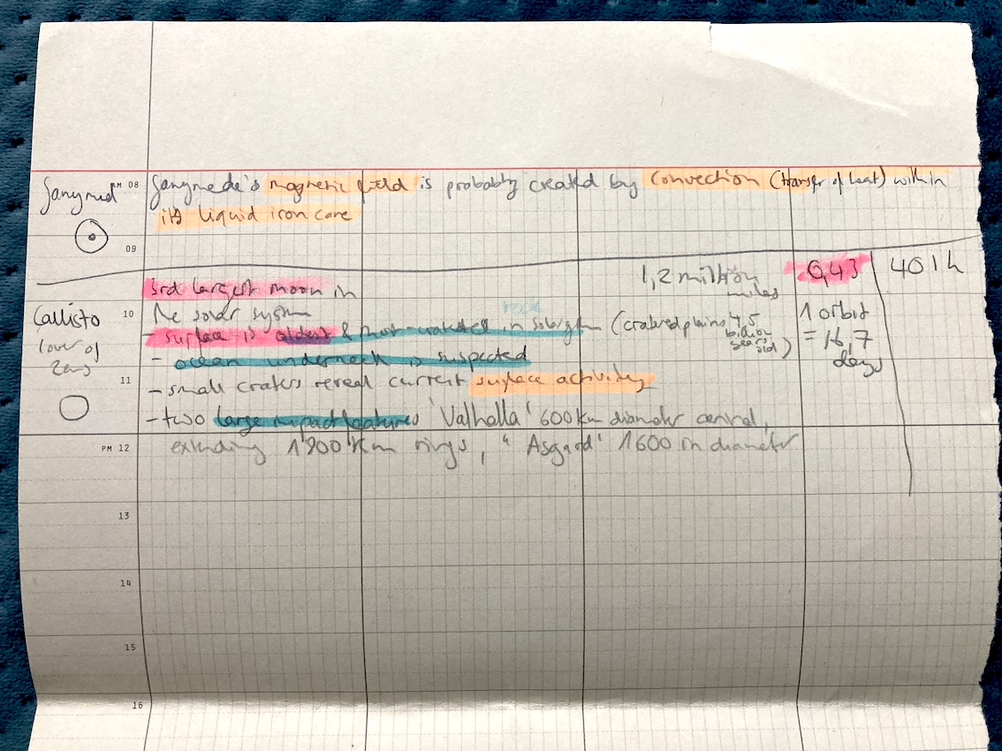 Ganymed
AM 08
Ganymede's magnetic field is probably created by convection (transfer of heat) within
its liquid iron core
09
3rd largest moon in
the solar system
1,2 million
miles
0,43
401h
Callisto
lover of
Zeus
10
- surface is oldest & most in solarsystem (cratered plains 4,5
billion
years
old)
1 orbit
= 16,7
days
- ocean underneath is suspected
11
- small craters reveal current surface activity
- two large impact features 'Valhalla' 600 km diameter central,
PM 12
extending 1'800 km rings, "Asgard' 1600 m diameter
13
14
15
16